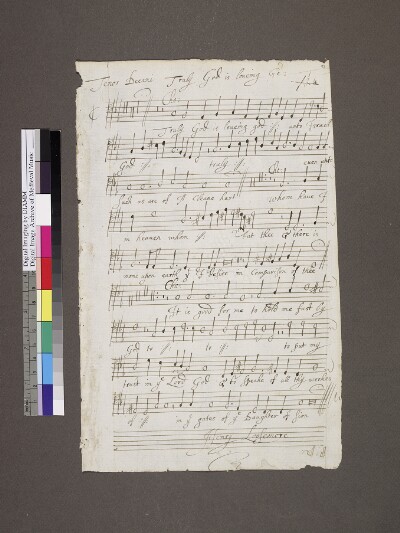 Tenor Decani Truly God is loveing &c:
Cho:
Truly God is loveing god unto Israell
God truly Cho: even unto
such as are of cleane hart whom have I
in heaven whom but thee & there is
none upon earth yt I desire in comparison of thee
Cho:
It is good for me to hold me fast by
God to to to put my
trust in ye Lord God & to speake of all thy workes
of in ye gates of ye Daughter of Sion
Henry Loosemore
Digital Imaging by DIAMM
Digital Image Archive of Medieval Music